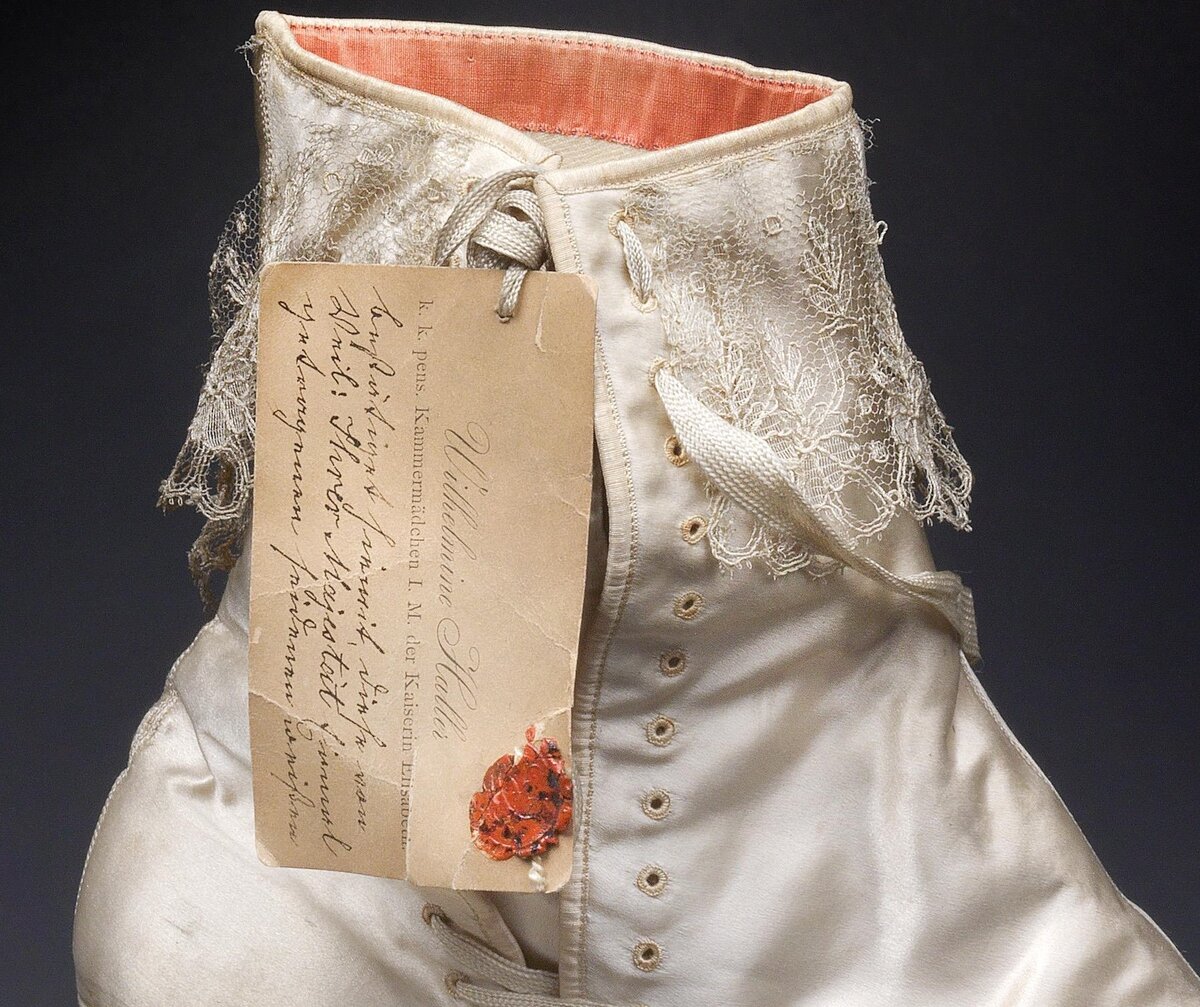 Wilhelmine Haller
k. k. pens. Kammermädchen I. M. der Kaiserin Elisabeth.
bestätiget hiemit diese von
Weil: Ihrer Majestät einmal
getragenen seidenen weißen